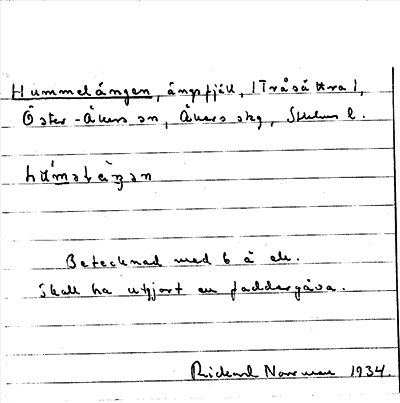 Hummelängen, ängsfjäll, (Tråsättra),
Öster-Åkers sn, Åkers skg, Sthlms l.
Betecknad med 6 å ek.
Skall ha utgjort en faddergåva.
Rickard Norrman 1934.